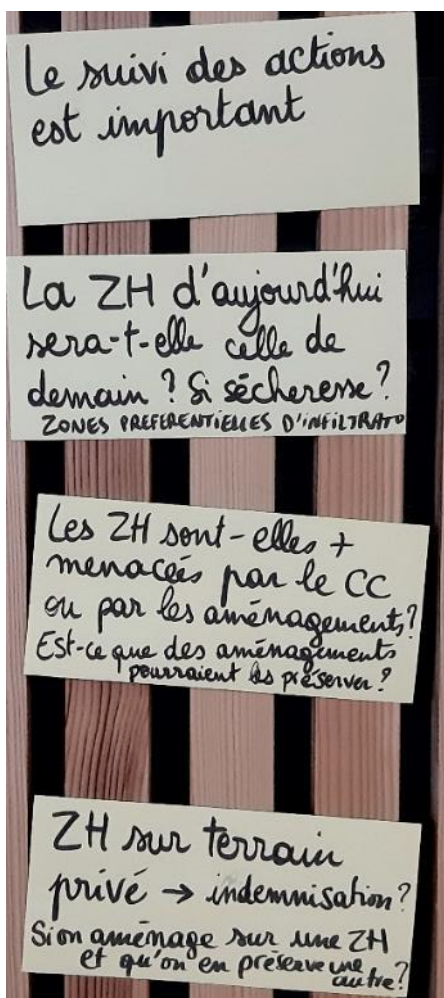 Le suivi des actions
est important
La ZH d'aujourd'hui
sera-t-elle celle de
demain ? Si sécheresse ?
ZONES PREFERENTIELLES D'INFILTRATO
Les ZH sont-elles +
menacées par le CC
ou par les aménagements ?
Est-ce que des aménagements
pourraient les préserver ?
ZH sur terrain
privé → indemnisation ?
Si on aménage sur une ZH
et qu'on en préserve une
autre ?